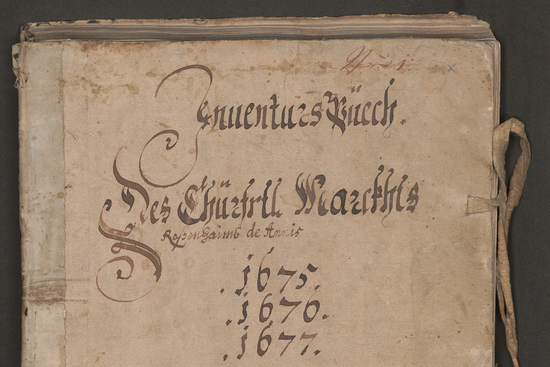 Inuenturs Büech.
Des Chürfrtl Marckhts
Rosenhaimb de Annis
.1675.
.1676.
.1677.